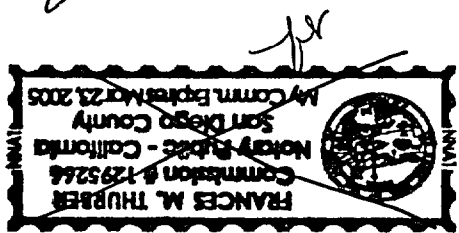 FRANCES M. THURBER
Commission # 1295266
Notary Public - California
San Diego County
My Comm. Expires Mar 23, 2005
NNA
NNA